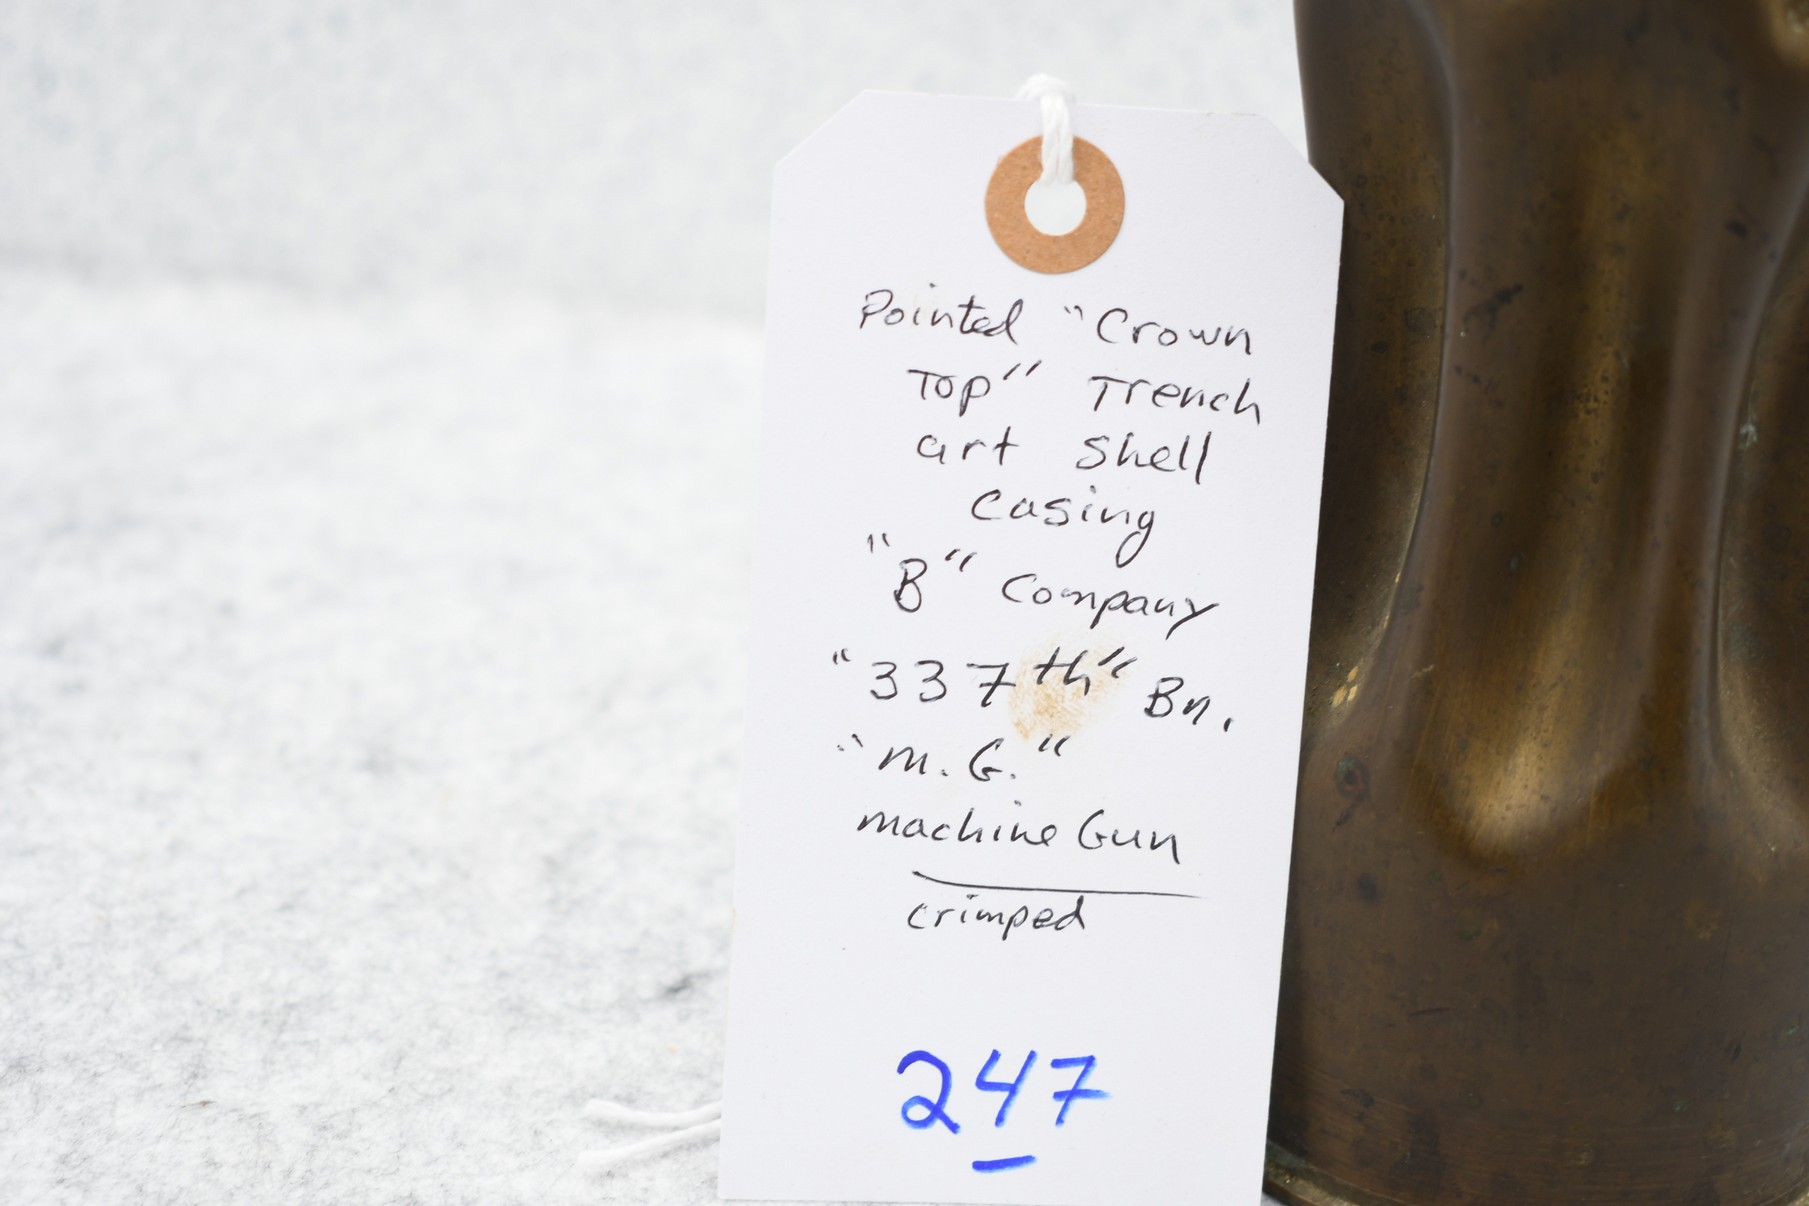 Pointed "Crown
Top" Trench
art Shell
casing
"B" Company
"337th" Bn.
"M.G."
machine Gun
crimped
247